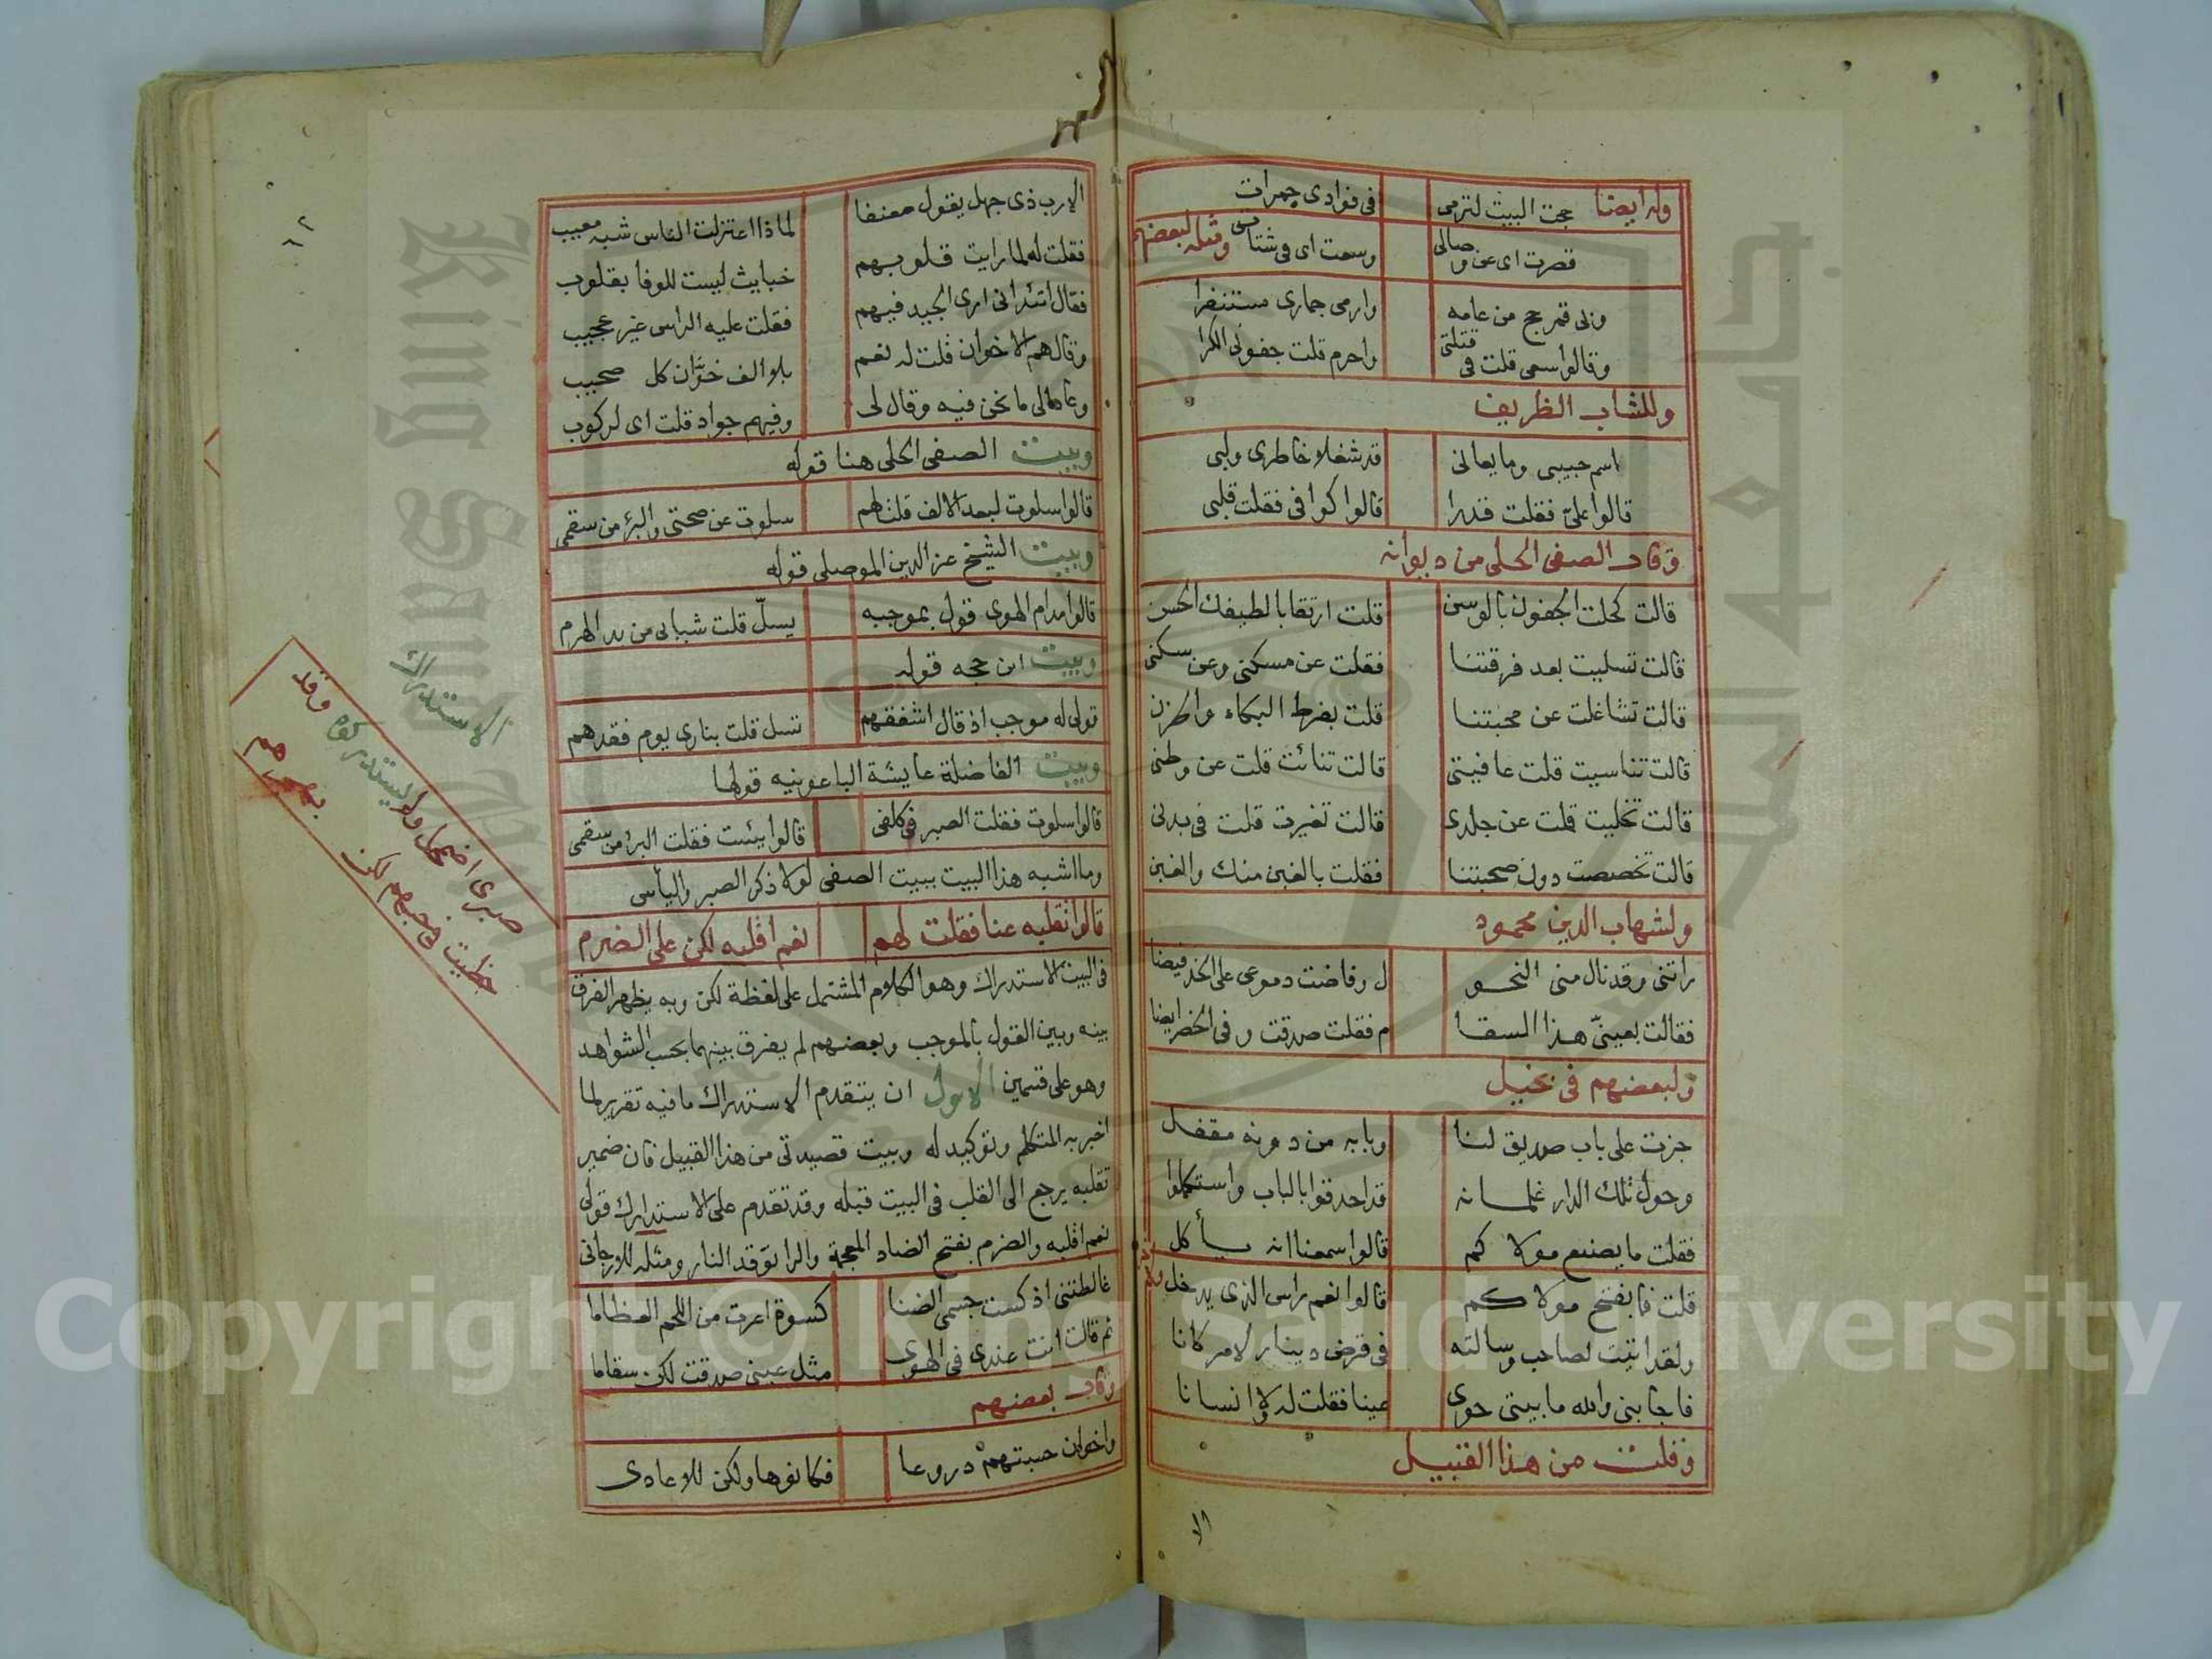 وله ايضا حجت البيت لترمى في فوادى جمرات
قصرت اى عن وصالى وسعت اى في شتاتى ومثله لبعضهم
وبي قمر حج من عامه وارمى جمارى مستنفرا
وقالوا سعى قلت في قتلتى واحرم قلت جفونى الكرا
وللشاب الظريف
اسم حبيبى وما يعانى قد شغلا خاطرى ولبى
قالوا علىّ فقلت قدرا قالوا كوافى فقلت قلبى
وقال الصفى الحلى من ديوانه
قالت كحلت الجفون بالوسن قلت ارتقابا لطيفك الحسن
قالت تسليت بعد فرقتنا فقلت عن مسكنى وعن سكنى
قالت تشاغلت عن محبتنا قلت بفرط البكاء والحزن
قالت تناسيت قلت عافيتى قالت تنائت قلت عن وطنى
قالت تخليت قلت عن جلدى قالت تغيرت قلت في بدنى
قالت تخصصت دون صحبتنا فقلت بالغبن منك والغبن
ولشهاب الدين محمود
راتنى وقد نال منى النحو ل وفاضت دموعى على الخد فيضا
فقالت بعينىّ هذا السقا م فقلت صدقت وفى الخصر ايضا
ولبعضهم فى بخيل
جزت على باب صديق لنا وبابه من دونه مقفل
وحول تلك الدار غلمانه قد احدقوا بالباب واستكملوا
فقلت ما يصنع مولاكم قالوا سمعنا انه ياكل
قلت فما يفتح مولاكم قالوا نعم راس الذى يدخل وله
ولقد اتيت لصاحب وسالته فى قرض دينار لامر كانا
فاجابنى والله ما بيتى حوى عينا فقلت له ولا انسانا
وقلت من هذا القبيل
الا
الارب ذى جهل يقول معنفا لماذا اعتزلت الناس شبه معيب
فقلت له لما رايت قلوبهم خبايث ليست للوفا بقلوب
فقال اتئد انى ارى الجيد فيهم فقلت عليه الراس غير عجيب
وقال هم الاخوان قلت له نعم بلا الف خوّان كل صحيب
وعاد الى ما نحن فيه وقال لى وفيهم جواد قلت اى لركوب
وبيت الصفى الحلى هنا قوله
قالوا سلوت لبعد الالف قلت لهم سلوت عن صحتى والبرؤ من سقمى
وبيت الشيخ عز الدين الموصلى قوله
قالوا مدام الهوى قول بموجبه يسلّ قلت شبابى من يد الهرم
وبيت ابن حجه قوله
قولى له موجب اذ قال اشفقهم تسل قلت بنارى يوم فقدهم
وبيت الفاضلة عايشة الباعونيه قولها
قالوا سلوت فقلت الصبر في كلفى قالوا يئست فقلت البرؤ من سقمى
وما اشبه هذا البيت ببيت الصفى لولا ذكر الصبر والياس
قالوا نقلبه عنا فقلت لهم نعم اقلبه لكن على الضرم
فى البيت الاستدراك وهو الكلام المشتمل على لفظة لكن وبه يظهر الفرق
بينه وبين القول بالموجب وبعضهم لم يفرق بينهما بحسب الشواهد
وهو على قسمين الاول ان يتقدم الاستدراك ما فيه تقرير لما
اخبر به المتكلم وتوكيد له وبيت قصيدتى من هذا القبيل فان ضمير
تقلبه يرجع الى القلب فى البيت قبله وقد تقدم على الاستدارك قولى
نعم اقلبه والضرم بفتح الضاد المعجمة والرا توقد النار ومثله للارجانى
غالطتنى اذ كست جسمى الضنا كسوة اعرت من اللحم العظاما
ثم قالت انت عندى فى الهوى مثل عينى صدقت لكن سقاما
وقال بعضهم
واخوان حسبتهم دروعا فكانوها ولكن للاعادى
الاستدراك
صبرى اضمحل ولم يستدركوه وقد
حظيت فى حبهم لكن
Copyright © King Saud University